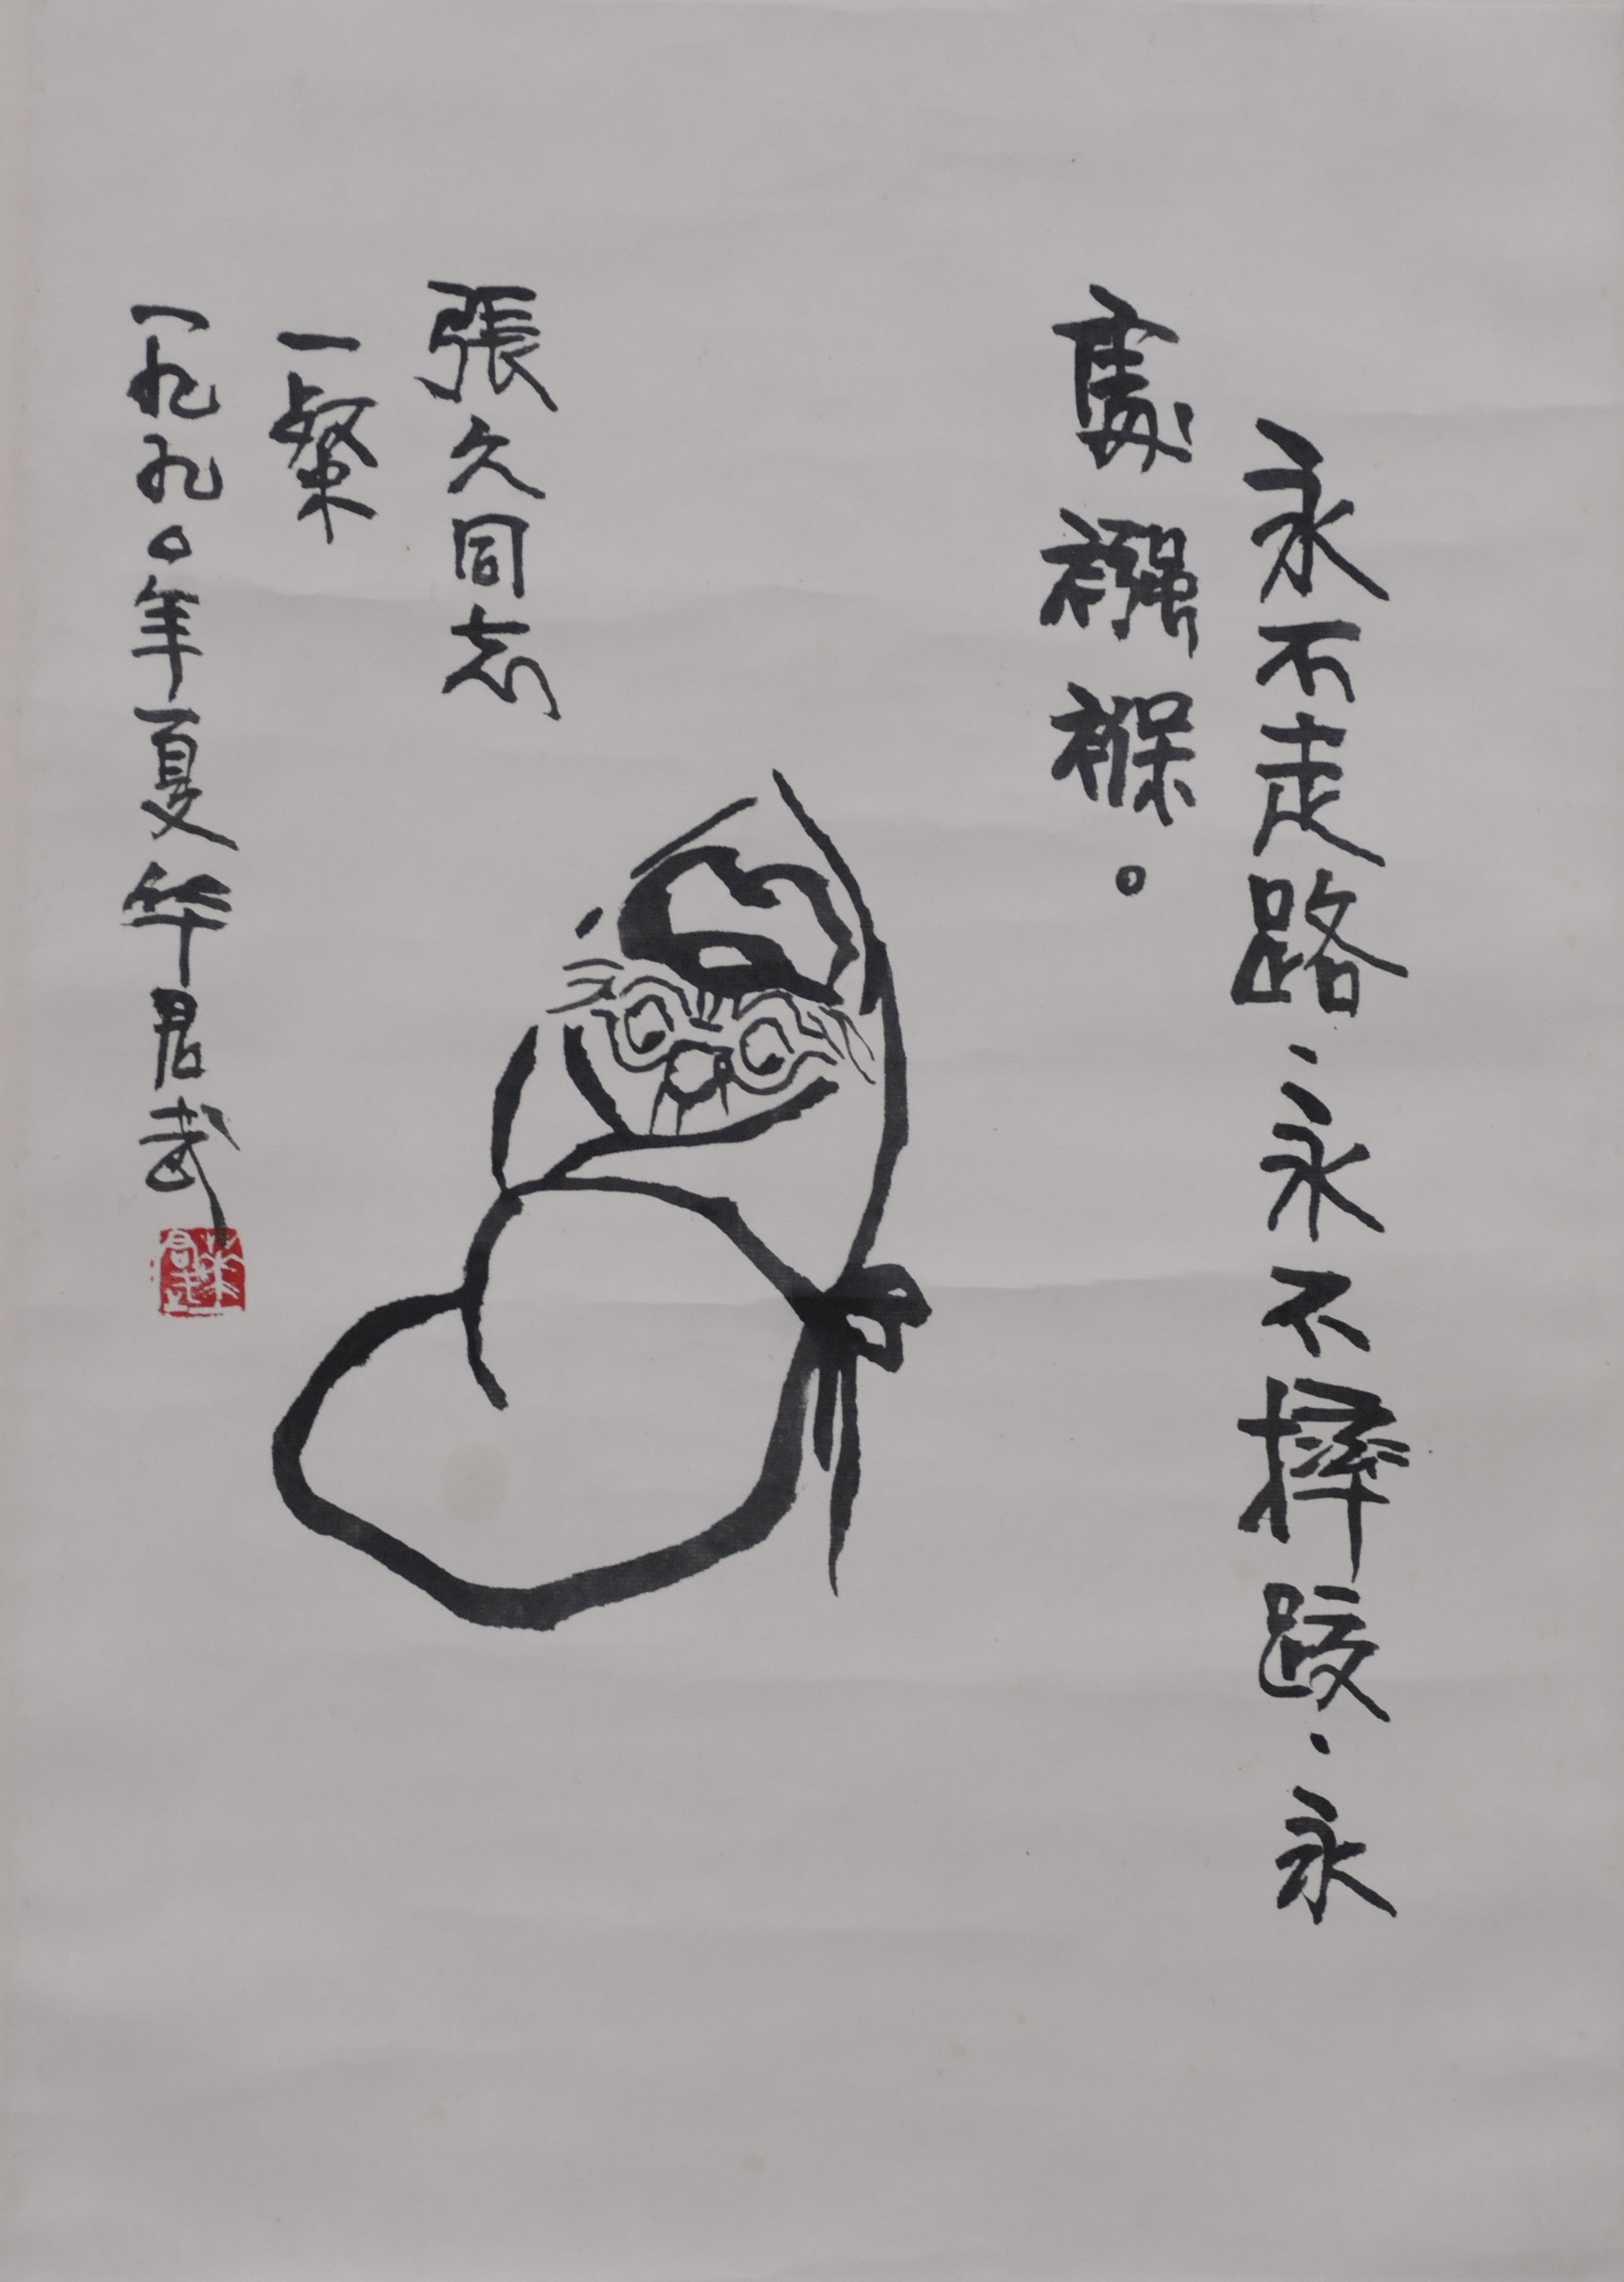 永不走路、永不摔跤、永
處襁褓。
張久同志
一粲
一九九〇年夏华君武
華君武